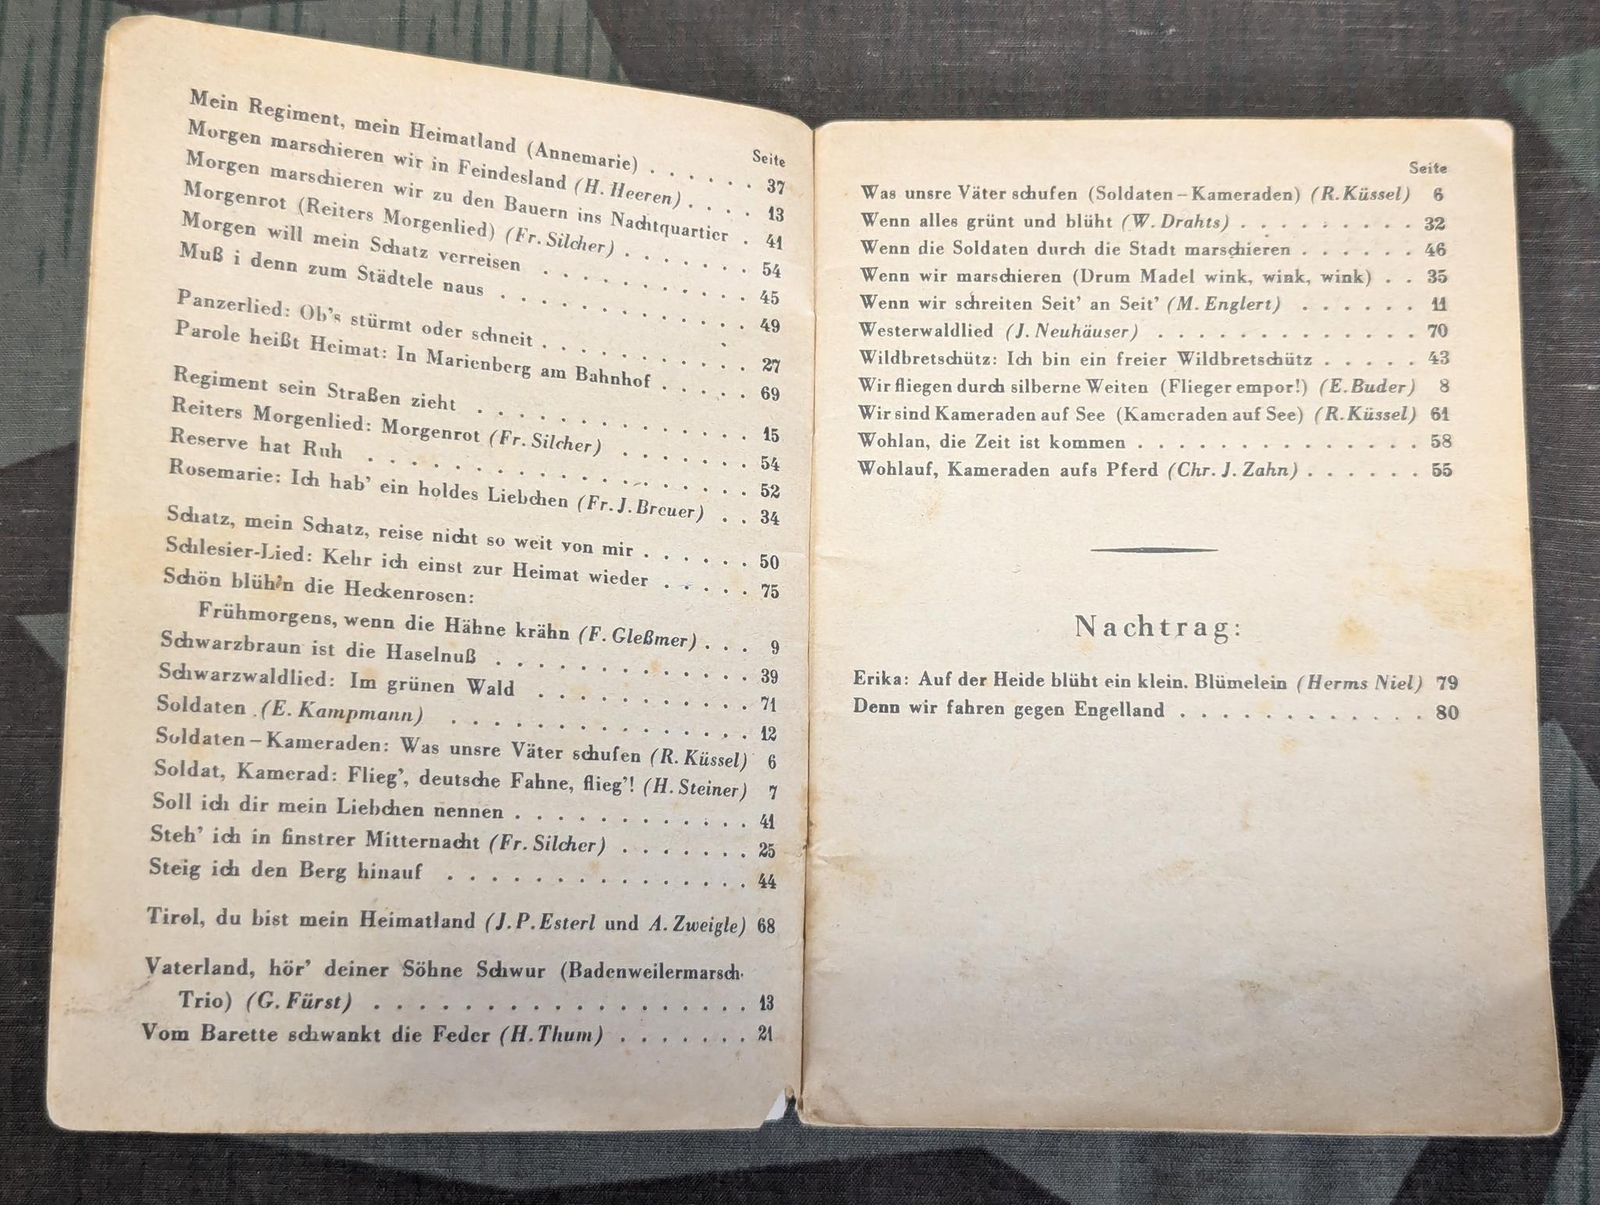 Seite
Mein Regiment, mein Heimatland (Annemarie) . . . . . . 37
Morgen marschieren wir in Feindesland (H. Heeren) . . . . 13
Morgen marschieren wir zu den Bauern ins Nachtquartier . 41
Morgenrot (Reiters Morgenlied) (Fr. Silcher) . . . . . . . 54
Morgen will mein Schatz verreisen . . . . . . . . . . . 45
Muß i denn zum Städtele naus . . . . . . . . . . . . . 49
Panzerlied: Ob's stürmt oder schneit . . . . . . . . . . 27
Parole heißt Heimat: In Marienberg am Bahnhof . . . . . 69
Regiment sein Straßen zieht . . . . . . . . . . . . . 15
Reiters Morgenlied: Morgenrot (Fr. Silcher) . . . . . . . 54
Reserve hat Ruh . . . . . . . . . . . . . . . . . 52
Rosemarie: Ich hab' ein holdes Liebchen (Fr. J. Breuer) . . 34
Schatz, mein Schatz, reise nicht so weit von mir . . . . . . 50
Schlesier-Lied: Kehr ich einst zur Heimat wieder . . . . . 75
Schön blüh'n die Heckenrosen:
Frühmorgens, wenn die Hähne krähn (F. Gleßmer) . . . 9
Schwarzbraun ist die Haselnuß . . . . . . . . . . . . 39
Schwarzwaldlied: Im grünen Wald . . . . . . . . . . 71
Soldaten (E. Kampmann) . . . . . . . . . . . . . . 12
Soldaten – Kameraden: Was unsre Väter schufen (R. Küssel) 6
Soldat, Kamerad: Flieg', deutsche Fahne, flieg'! (H. Steiner) 7
Soll ich dir mein Liebchen nennen . . . . . . . . . . . 41
Steh' ich in finstrer Mitternacht (Fr. Silcher) . . . . . . . 25
Steig ich den Berg hinauf . . . . . . . . . . . . . . 44
Tirol, du bist mein Heimatland (J. P. Esterl und A. Zweigle) 68
Vaterland, hör' deiner Söhne Schwur (Badenweilermarsch-
Trio) (G. Fürst) . . . . . . . . . . . . . . . . . . 13
Vom Barette schwankt die Feder (H. Thum) . . . . . . . 21
Seite
Was unsre Väter schufen (Soldaten – Kameraden) (R. Küssel) 6
Wenn alles grünt und blüht (W. Drahts) . . . . . . . . . 32
Wenn die Soldaten durch die Stadt marschieren . . . . . . 46
Wenn wir marschieren (Drum Madel wink, wink, wink) . . 35
Wenn wir schreiten Seit' an Seit' (M. Englert) . . . . . . 11
Westerwaldlied (J. Neuhäuser) . . . . . . . . . . . . 70
Wildbretschütz: Ich bin ein freier Wildbretschütz . . . . . 43
Wir fliegen durch silberne Weiten (Flieger empor!) (E. Buder) 8
Wir sind Kameraden auf See (Kameraden auf See) (R. Küssel) 61
Wohlan, die Zeit ist kommen . . . . . . . . . . . . . . 58
Wohlauf, Kameraden aufs Pferd (Chr. J. Zahn) . . . . . . 55
Nachtrag:
Erika: Auf der Heide blüht ein klein. Blümelein (Herms Niel) 79
Denn wir fahren gegen Engelland . . . . . . . . . . . . 80